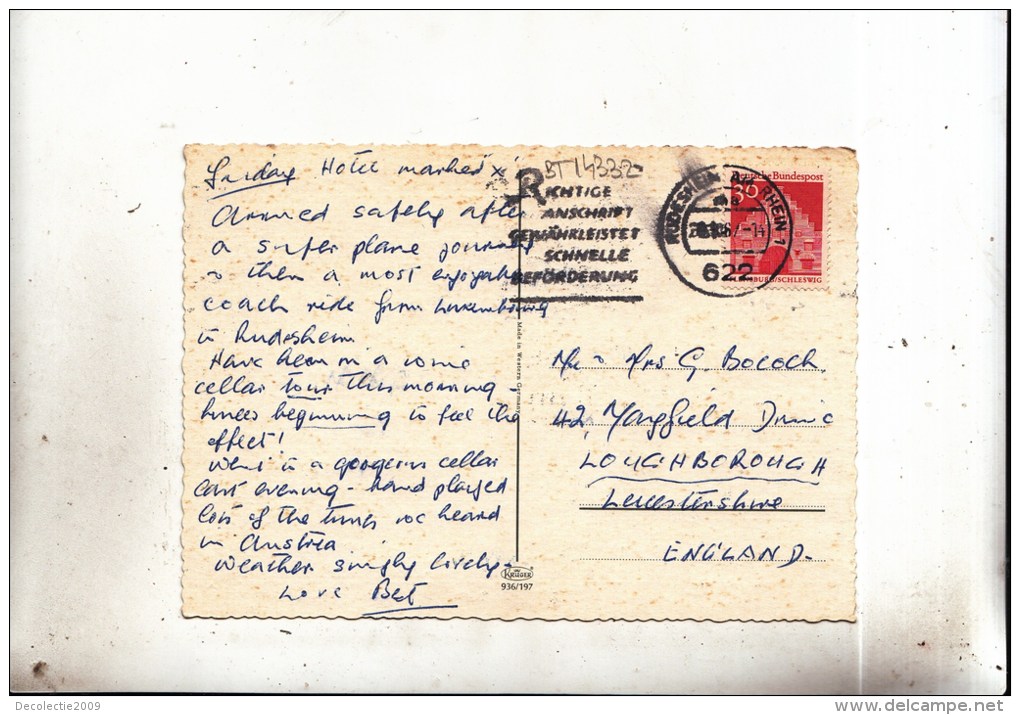 Friday Hotel marked x
Arrived safely after
a super plane journey
& then a most enjoyable
coach ride from Luxembourg
to Rudesheim
Have been in a wine
cellar tour this morning -
hence beginning to feel the
effect!
Went to a gorgeous cellar
last evening - band played
lots of the tunes we heard
in Austria
Weather simply lovely -
Love Bet
BT 14332
RICHTIGE
ANSCHRIFT
GEWÄHRLEISTET
SCHNELLE
BEFÖRDERUNG
RÜDESHEIM AM RHEIN 1
622
Deutsche Bundespost
30
FLENSBURG/SCHLESWIG
Mr & Mrs G. Bococh
42, Drive
LOUGHBOROUGH
Leicestershire
ENGLAND.
Made in Western Germany
KRÜGER
936/197
Decolectie2009
delcampe.net